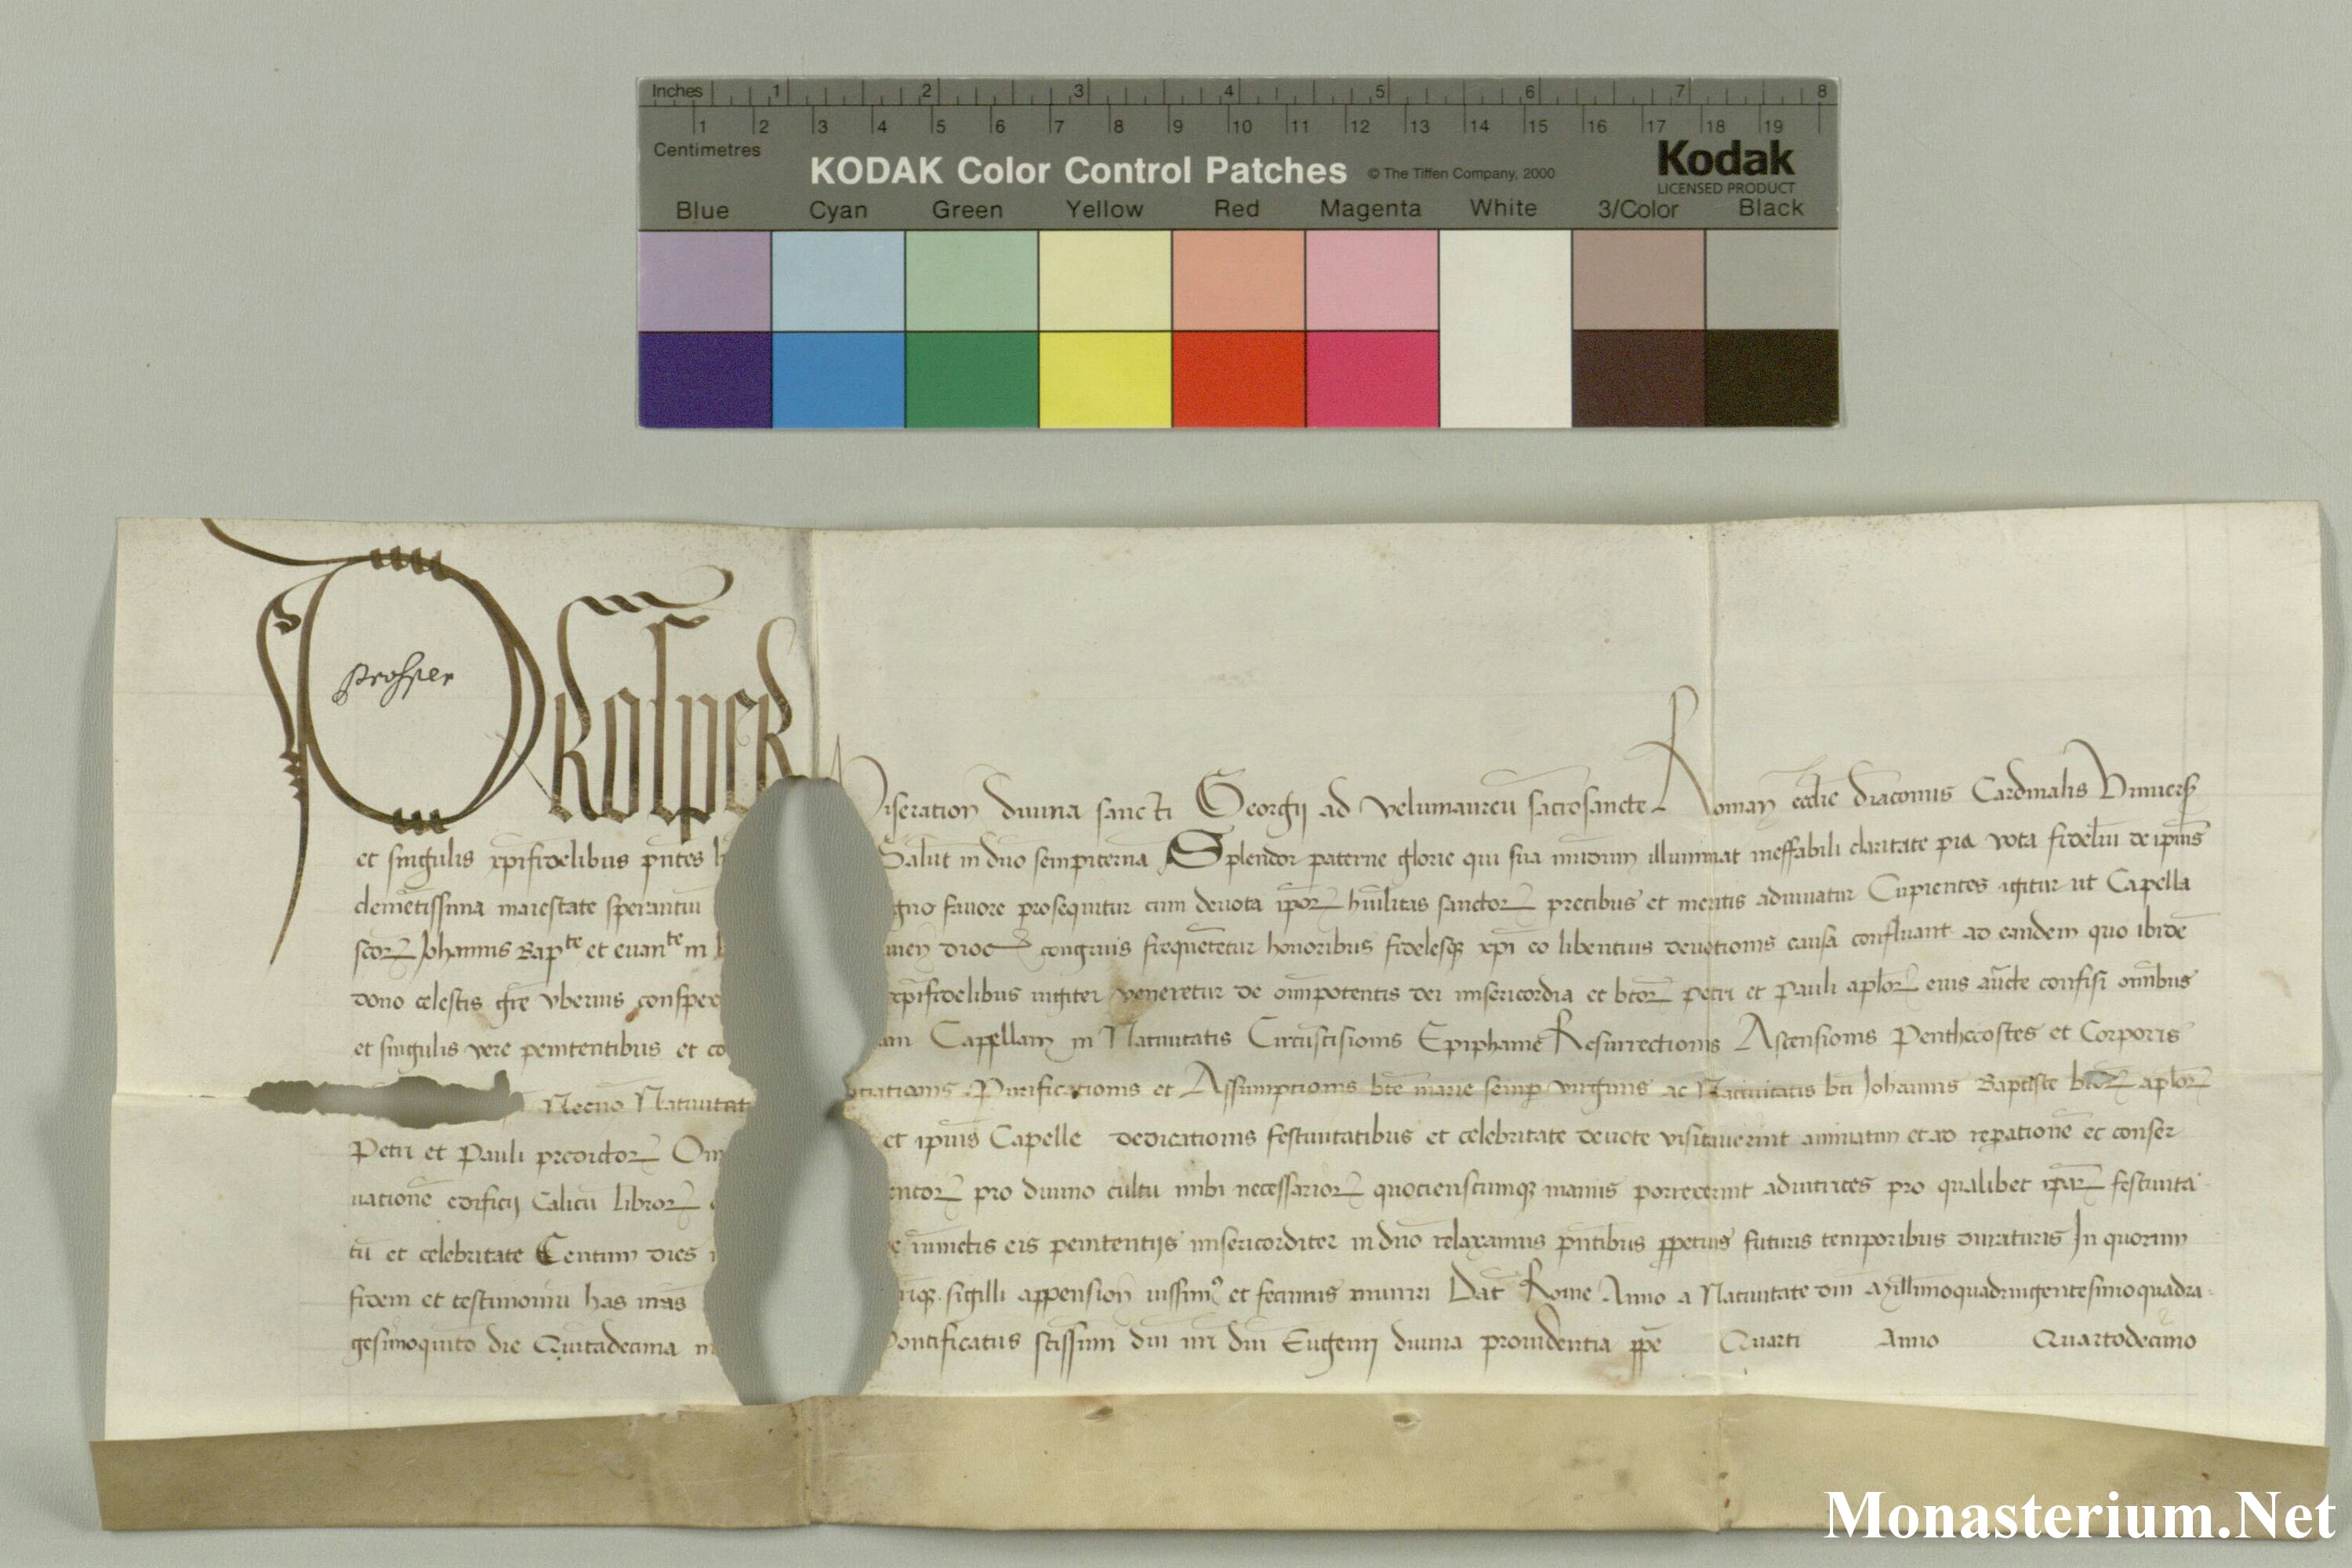 Inches 1 2 3 4 5 6 7 8
1 2 3 4 5 6 7 8 9 10 11 12 13 14 15 16 17 18 19
Centimetres
KODAK Color Control Patches © The Tiffen Company, 2000 Kodak
LICENSED PRODUCT
Blue Cyan Green Yellow Red Magenta White 3/Color Black
prosper
PRosper iseration divina sancti Georgij ad velumaureu sacrosancte Roman eccl̄ie diaconus Cardinalis Univers
et singulis xp̄ifidelibus pn̄tes Salut̄ in dn̄o sempiterna Splendor paterne glorie qui sua mundum illuminat ineffabili claritate pia vota fideliū de ip̄ius
clemētissima maiestate sperantiū gno favore prosequitur cum devota ip̄oꝝ hūilitas sanctoꝝ precibus et meritis adiuvatur Cupientes igitur ut Capella
sc̄oꝝ Johannis Bapte et evante in dioc̄ congruis frequētetur honoribus fidelesqꝫ xp̄i eo libentius devotionis causa confluant ad eandem quo ibidē
dono celestis gr̄e uberius conspex xp̄ifidelibus iugiter veneretur de om̄ipotentis dei misericordia et bt̄oꝝ petri et pauli apl̄oꝝ eius auct̄e confisi om̄ibus
et singulis vere penitentibus et co am Capellam in Nativitatis Circūcisionis Epiphanie Resurrectionis Ascensionis Penthecostes et Corporis
Necnō Nativitat tiationis Purificationis et Assumptionis bt̄e marie semp̄ virginis ac Nativitatis bt̄i Johannis Baptiste bt̄oꝝ apl̄oꝝ
Petri et Pauli predictoꝝ Om et ip̄ius Capelle dedicationis festivitatibus et celebritate devote visitaverint annuatim et ad reparationē et conser
vationē edificij Calicū libroꝝ entoꝝ pro divino cultu inibi necessarioꝝ quotienscumqꝫ manus porrexerint adiutrices pro qualibet ip̄aꝝ festivita
tū et celebritate Centum dies iniunctis eis penitentijs misericorditer in dn̄o relaxamus pn̄tibus ꝑpetuis futuris temporibus duraturis In quorum
fidem et testimoniū has n̄ras riqꝫ sigilli appension iussimꝰ et fecimus muniri Dat̄ Rome Anno a Nativitate dn̄i Millimoquadringentesimoquadra
gesimoquīto die Quītadecima m Pontificatus sc̄issimi dn̄i nr̄i dn̄i Eugenij divina providentia pp̄e Quarti Anno Quartodecimo
Monasterium.Net